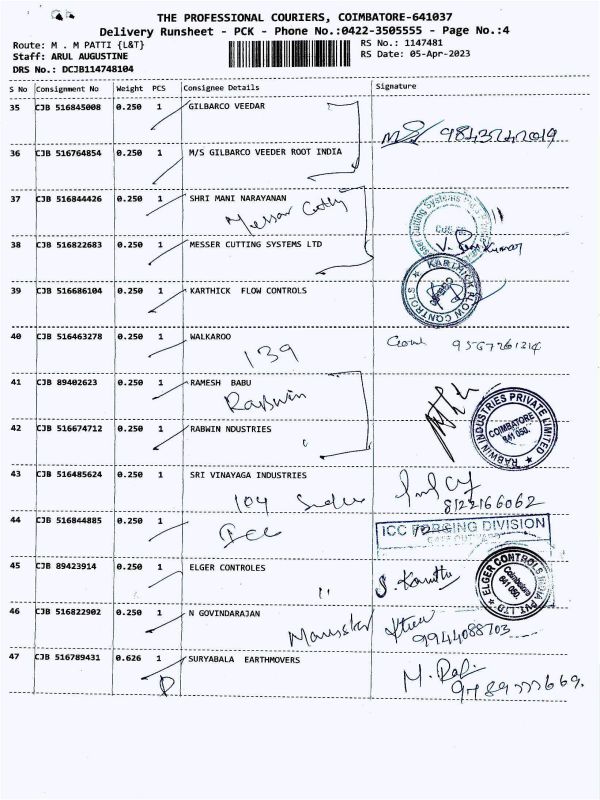 THE PROFESSIONAL COURIERS, COIMBATORE-641037
Delivery Runsheet - PCK - Phone No.:0422-3505555 - Page No.:4
Route: M . M PATTI {L&T}
RS No.: 1147481
Staff: ARUL AUGUSTINE
RS Date: 05-Apr-2023
DRS No.: DCJB114748104
S No Consignment No Weight PCS Consignee Details Signature
35 CJB 516845008 0.250 1 GILBARCO VEEDAR
9843747019
36 CJB 516764854 0.250 1 M/S GILBARCO VEEDER ROOT INDIA
37 CJB 516844426 0.250 1 SHRI MANI NARAYANAN
Messer Cutting
38 CJB 516822683 0.250 1 MESSER CUTTING SYSTEMS LTD
39 CJB 516686104 0.250 1 KARTHICK FLOW CONTROLS
KARTHICK FLOW CONTROLS
40 CJB 516463278 0.250 1 WALKAROO
139
9567261214
41 CJB 89402623 0.250 1 RAMESH BABU
Rabwin
42 CJB 516674712 0.250 1 RABWIN NDUSTRIES
RABWIN INDUSTRIES PRIVATE LIMITED
COIMBATORE
641 050.
43 CJB 516485624 0.250 1 SRI VINAYAGA INDUSTRIES
104
8122166062
44 CJB 516844885 0.250 1
ICC
ICC FORGING DIVISION
45 CJB 89423914 0.250 1 ELGER CONTROLES
ELGER CONTROLS INDIA PVT LTD
Coimbatore
641 050.
46 CJB 516822902 0.250 1 N GOVINDARAJAN
9944088703
47 CJB 516789431 0.626 1 SURYABALA EARTHMOVERS
M. Raj.